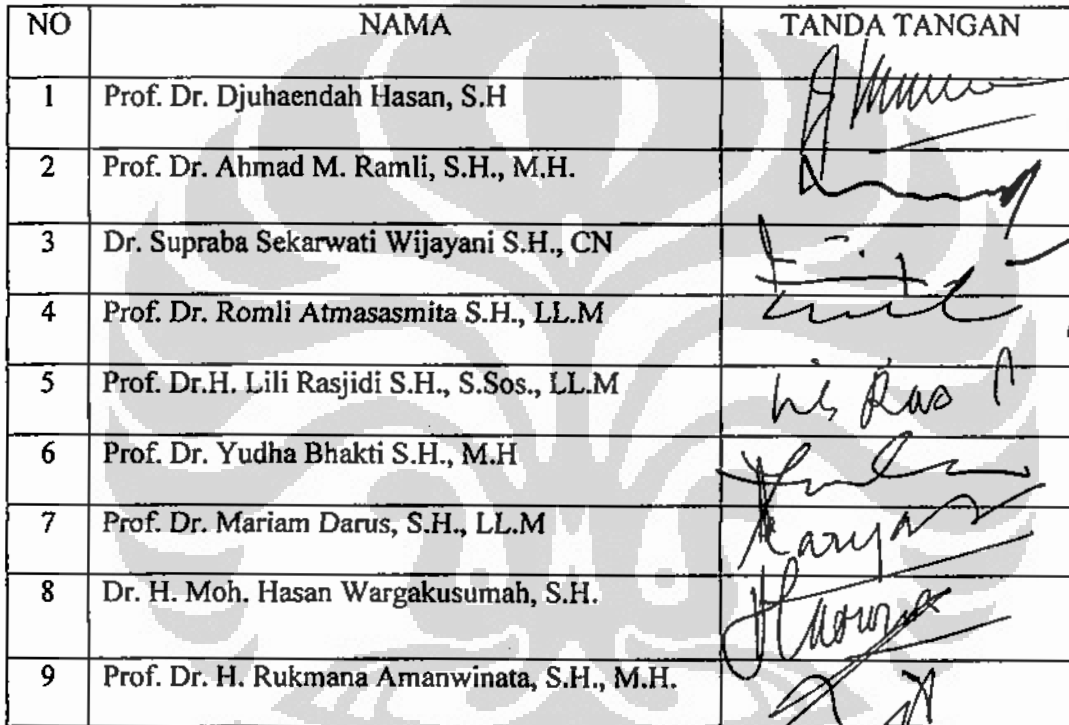 NO NAMA TANDA TANGAN
1 Prof. Dr. Djuhaendah Hasan, S.H
2 Prof. Dr. Ahmad M. Ramli, S.H., M.H.
3 Dr. Supraba Sekarwati Wijayani S.H., CN
4 Prof. Dr. Romli Atmasasmita S.H., LL.M
5 Prof. Dr.H. Lili Rasjidi S.H., S.Sos., LL.M
6 Prof. Dr. Yudha Bhakti S.H., M.H
7 Prof. Dr. Mariam Darus, S.H., LL.M
8 Dr. H. Moh. Hasan Wargakusumah, S.H.
9 Prof. Dr. H. Rukmana Amanwinata, S.H., M.H.